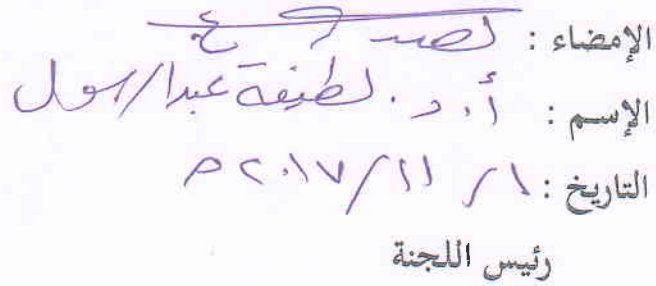 الإمضاء :
الإسم : أ. د. لطيفة عبدالرسول
التاريخ : ١ / ١١ / ٢٠١٧ م
رئيس اللجنة